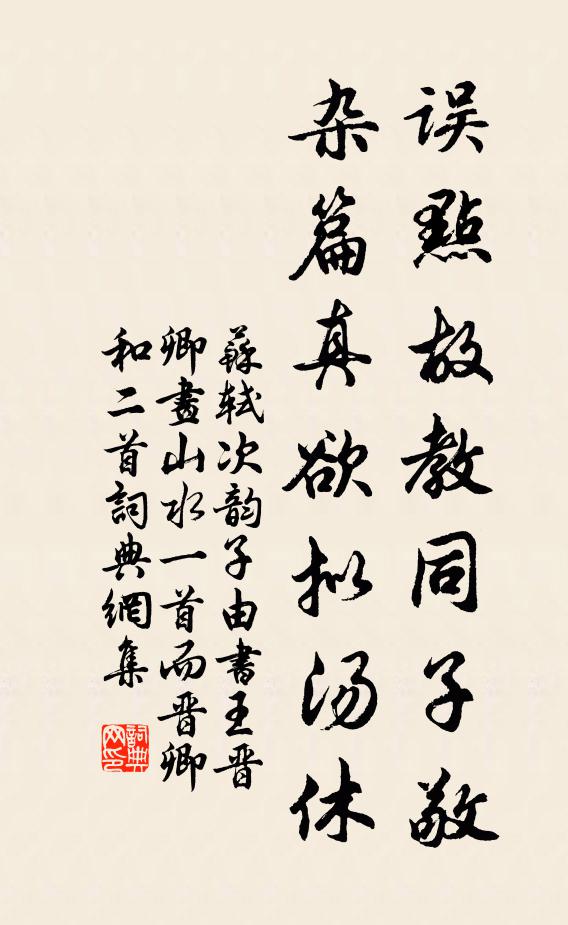 误點故教同子敬
杂篇真欲拟汤休
蘇轼次韵子由書王晋
卿畫山水一首而晋卿
和二首詞典網集
詞典网印